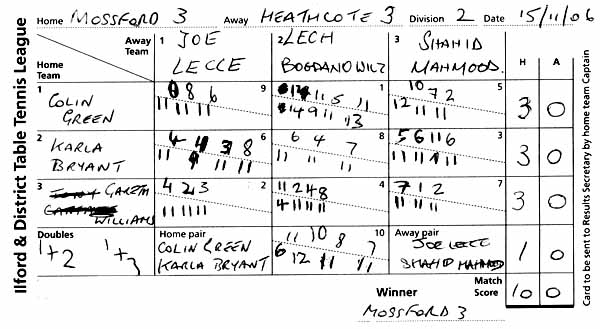 Ilford & District Table Tennis League
Home MOSSFORD 3 Away HEATHCOTE 3 Division 2 Date 15/11/06
Away Team 1 JOE LECCE 2 LECH BOGDANOWICZ 3 SHAHID MAHMOOD H A
Home Team
1 COLIN GREEN 9 8 6 11 11 11 1 11 5 11 11 4 9 11 13 5 10 7 2 12 11 11 3 0
2 KARLA BRYANT 6 4 4 3 8 11 9 11 11 11 8 6 4 7 11 11 11 3 5 6 11 6 11 11 4 11 3 0
3 GARETH WILLIAMS 2 4 2 3 11 11 11 4 11 2 4 8 4 11 11 11 7 7 1 2 11 11 11 3 0
Doubles 1+2 1+3 Home pair COLIN GREEN KARLA BRYANT 10 11 10 8 7 6 12 11 11 Away pair JOE LECCE SHAHID MAHMOOD 1 0
Winner MOSSFORD 3 Match Score 10 0
Card to be sent to Results Secretary by home team Captain